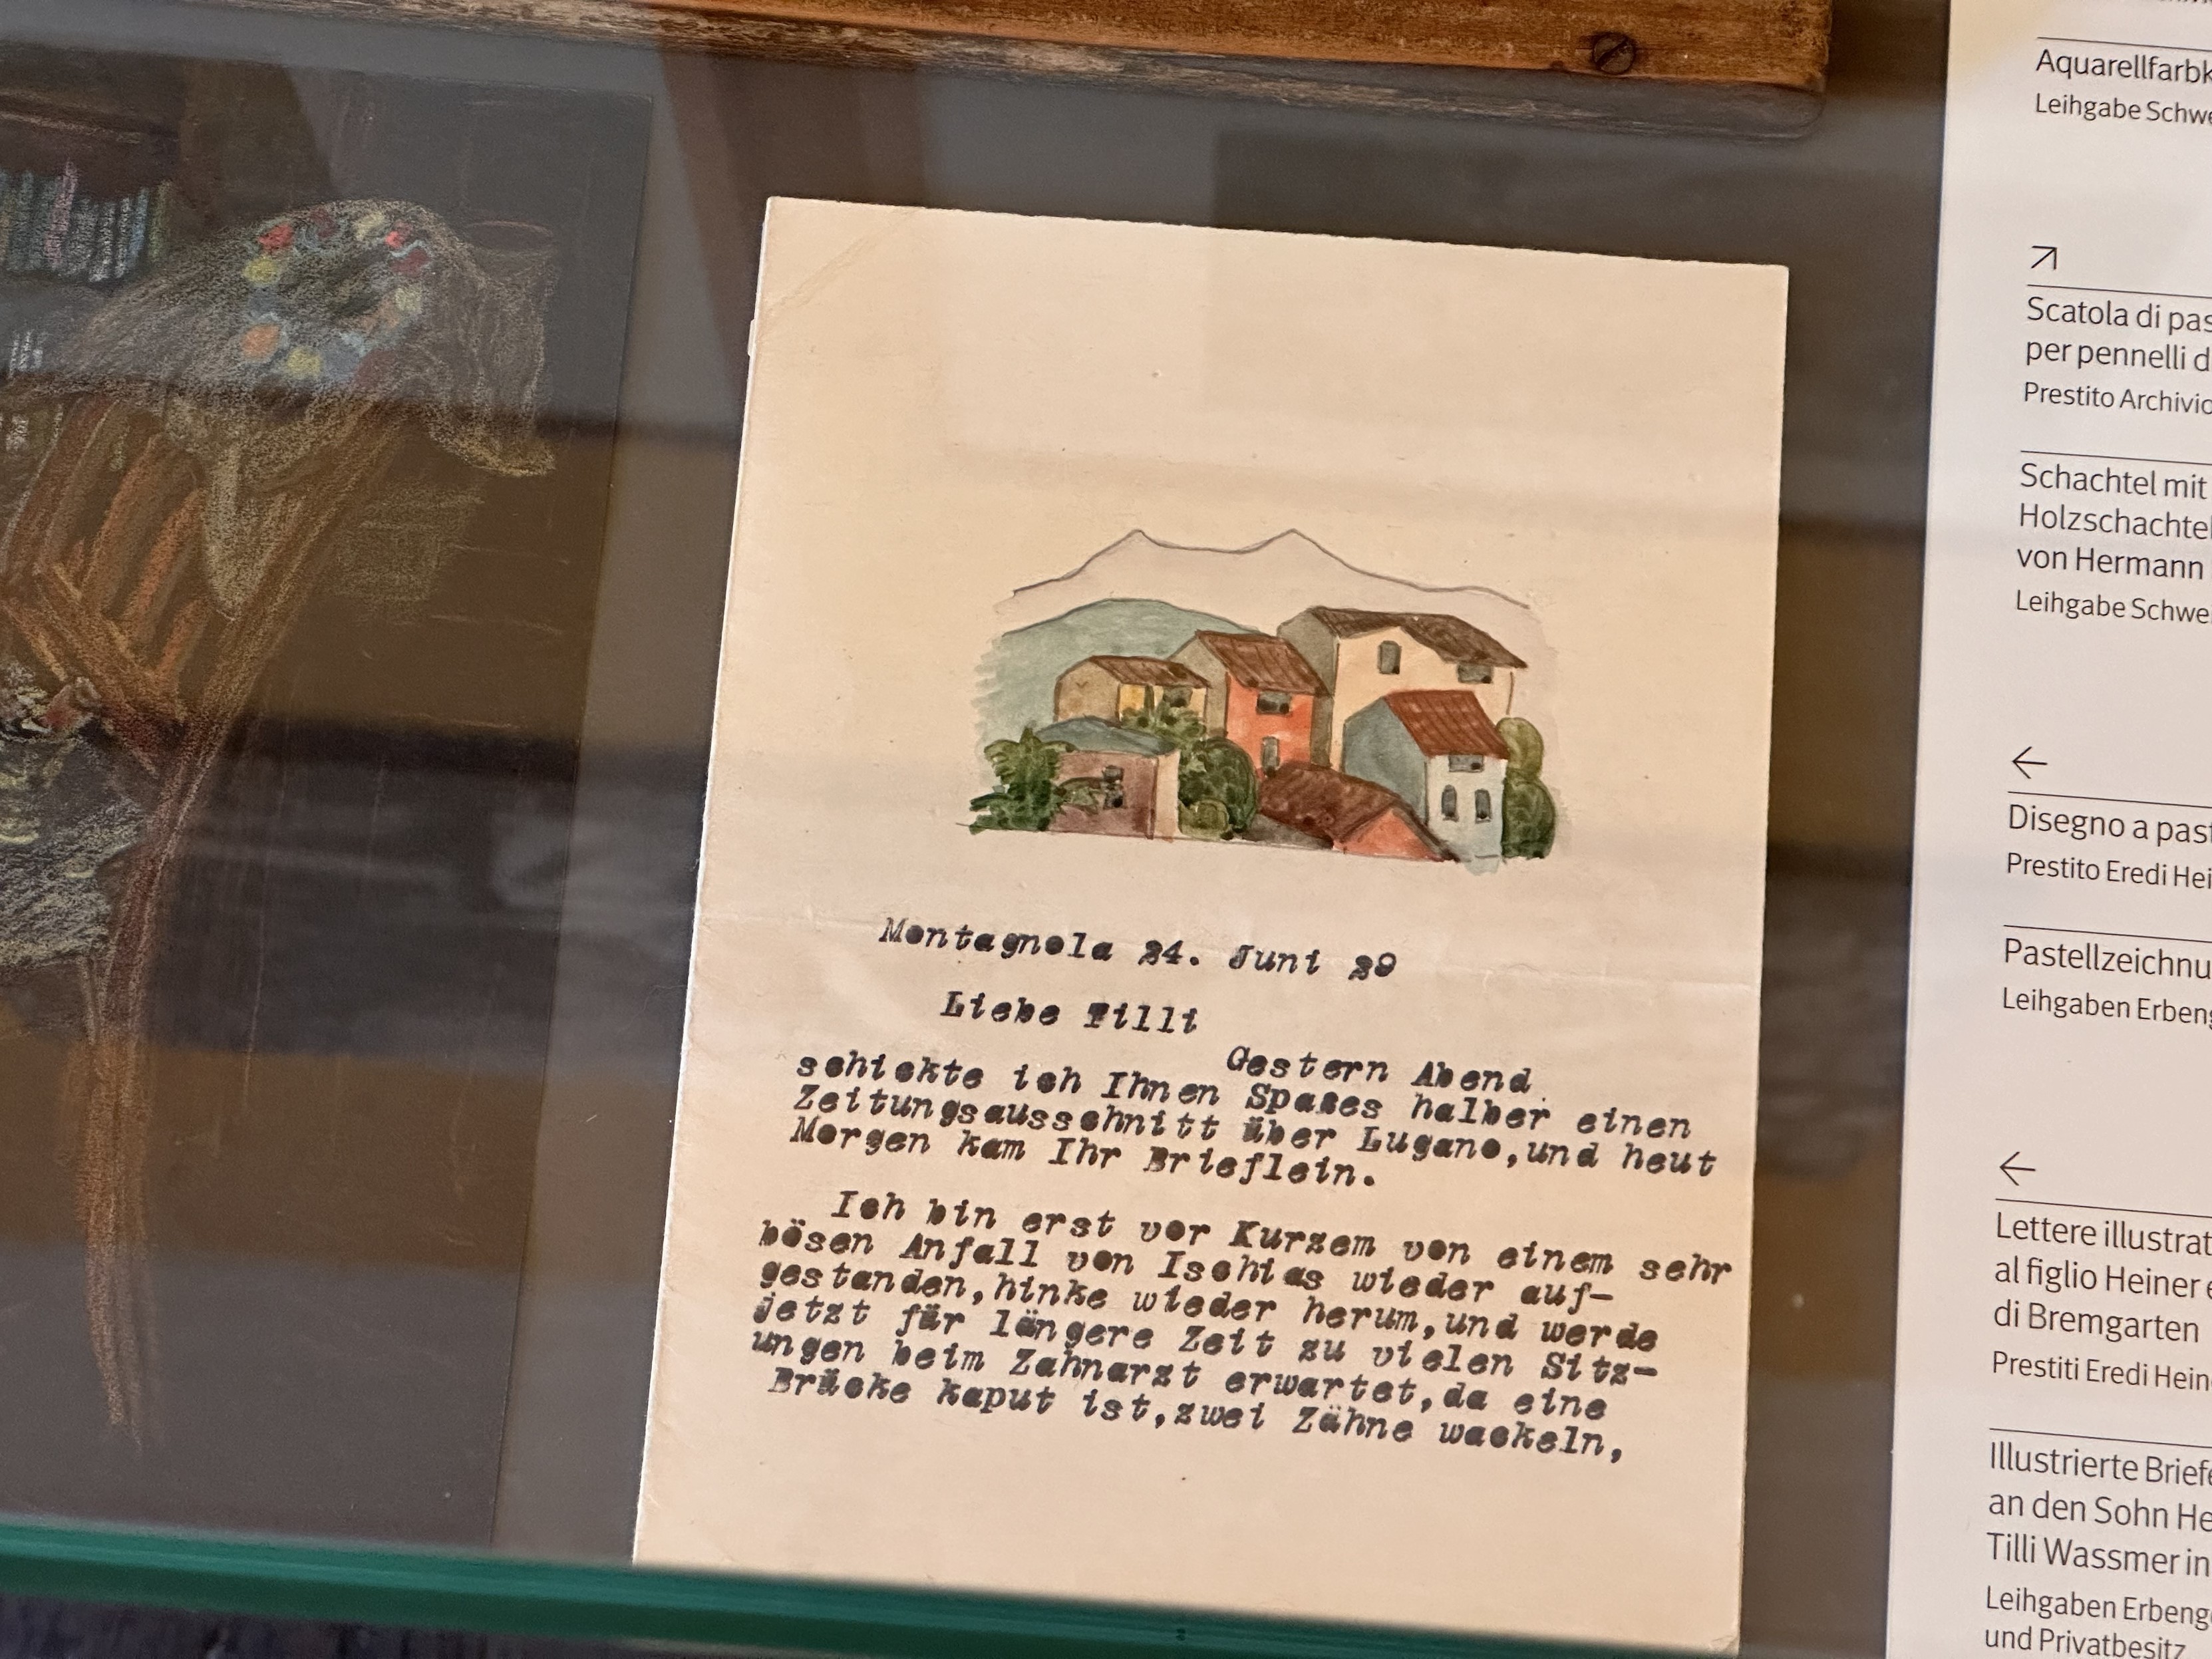 Montagnola 24. Juni 29
Liebe Tilli
Gestern Abend
schickte ich Ihnen Spases halber einen
Zeitungsausschnitt über Lugano,und heut
Morgen kam Ihr Brieflein.
Ich bin erst vor Kurzem von einem sehr
bösen Anfall von Ischias wieder auf-
gestanden,hinke wieder herum,und werde
jetzt für längere Zeit zu vielen Sitz-
ungen beim Zahnarzt erwartet,da eine
Brücke kaput ist,zwei Zähne wackeln,
Aquarellfarbk
Leihgabe Schwe
↗
Scatola di pas
per pennelli d
Prestito Archivio
Schachtel mit
Holzschachtel
von Hermann
Leihgabe Schwe
←
Disegno a past
Prestito Eredi Hei
Pastellzeichnu
Leihgaben Erbeng
←
Lettere illustrat
al figlio Heiner e
di Bremgarten
Prestiti Eredi Hein
Illustrierte Briefe
an den Sohn He
Tilli Wassmer in
Leihgaben Erbeng
und Privatbesitz